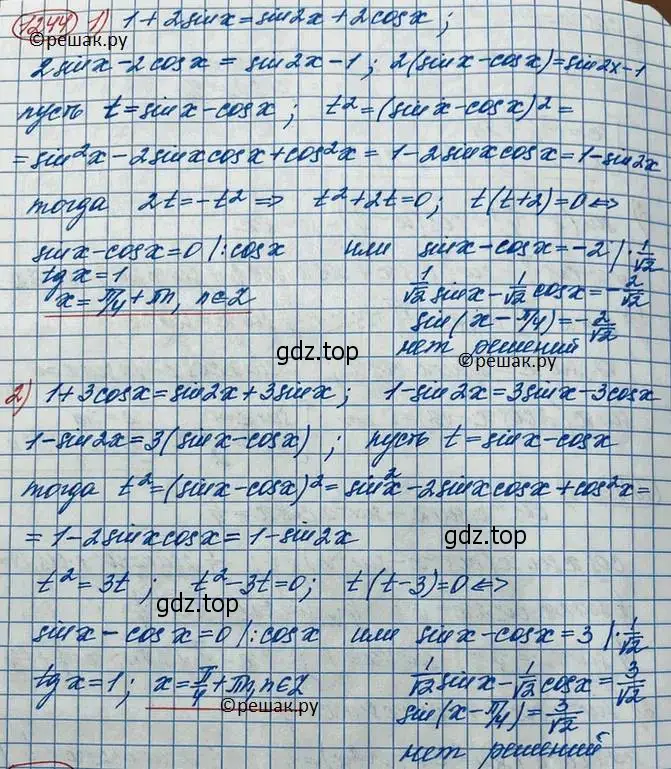 1244 1) 1 + 2sinx = sin2x + 2cosx ;
©решак.ру
2sinx - 2cosx = sin2x - 1 ; 2(sinx - cosx) = sin2x - 1
пусть t = sinx - cosx ; t² = (sinx - cosx)² =
= sin²x - 2sinxcosx + cos²x = 1 - 2sinxcosx = 1 - sin2x
тогда 2t = -t² => t² + 2t = 0; t(t+2) = 0 <=>
sinx - cosx = 0 |:cosx или sinx - cosx = -2 |·1/√2
tgx = 1 1/√2 sinx - 1/√2 cosx = -2/√2
x = π/4 + πn, n∈Z sin(x - π/4) = -2/√2
нет решений
gdz.top
2) 1 + 3cosx = sin2x + 3sinx ; 1 - sin2x = 3sinx - 3cosx
©решак.ру
1 - sin2x = 3(sinx - cosx) ; пусть t = sinx - cosx
тогда t² = (sinx - cosx)² = sin²x - 2sinxcosx + cos²x =
= 1 - 2sinxcosx = 1 - sin2x
gdz.top
t² = 3t ; t² - 3t = 0; t(t-3) = 0 <=>
gdz.top
sinx - cosx = 0 |:cosx или sinx - cosx = 3 |·1/√2
tgx = 1 ; x = π/4 + πn, n∈Z 1/√2 sinx - 1/√2 cosx = 3/√2
©решак.ру
sin(x - π/4) = 3/√2
нет решений